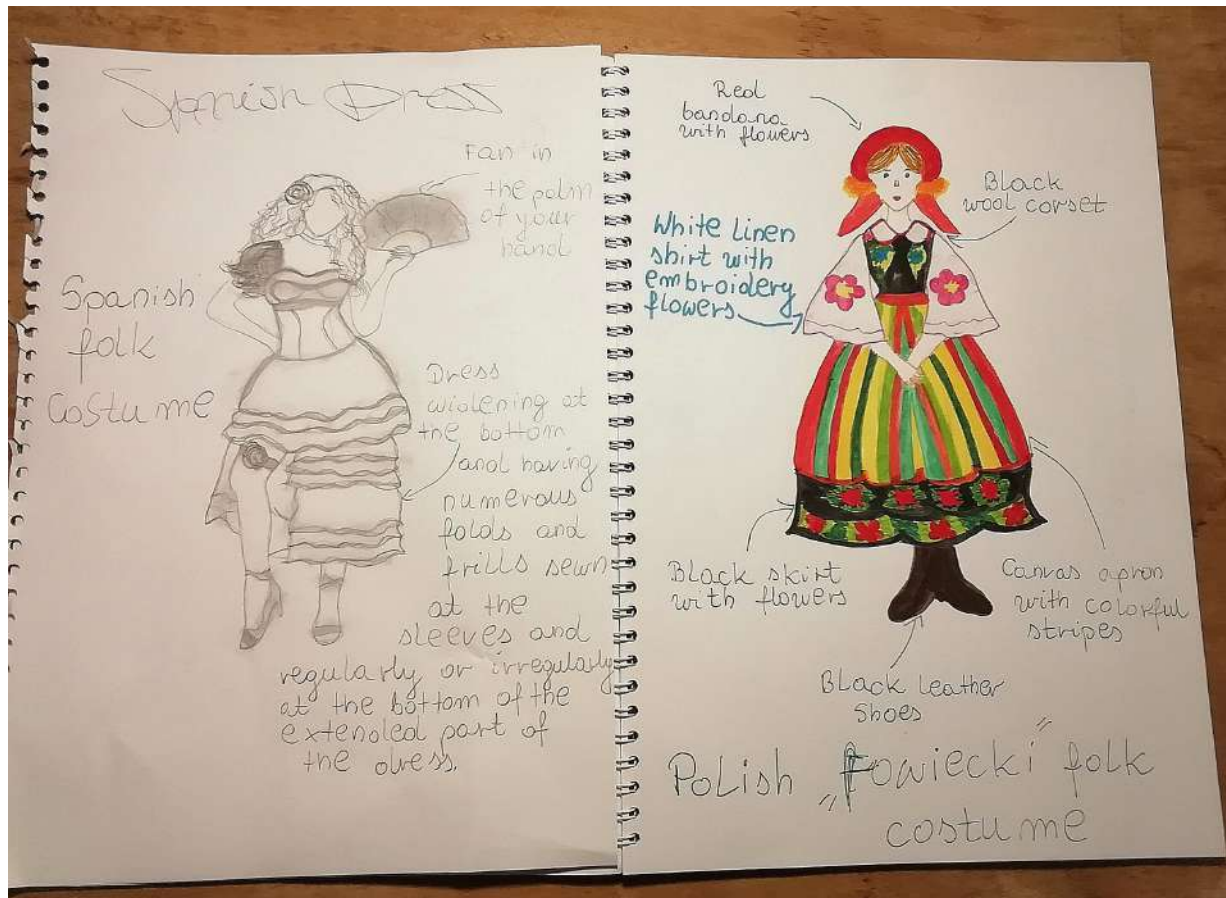 Spanish Dress
Fan in
the palm
of your
hand
Spanish
folk
Costume
Dress
widening at
the bottom
and having
numerous
folds and
frills sewn
at the
sleeves and
regularly or irregularly
at the bottom of the
extended part of
the dress.
Red
bandana
with flowers
Black
wool corset
White Linen
shirt with
embroidery
flowers
Black skirt
with flowers
Canvas apron
with colorful
stripes
Black Leather
Shoes
Polish „Łowiecki” folk
costume